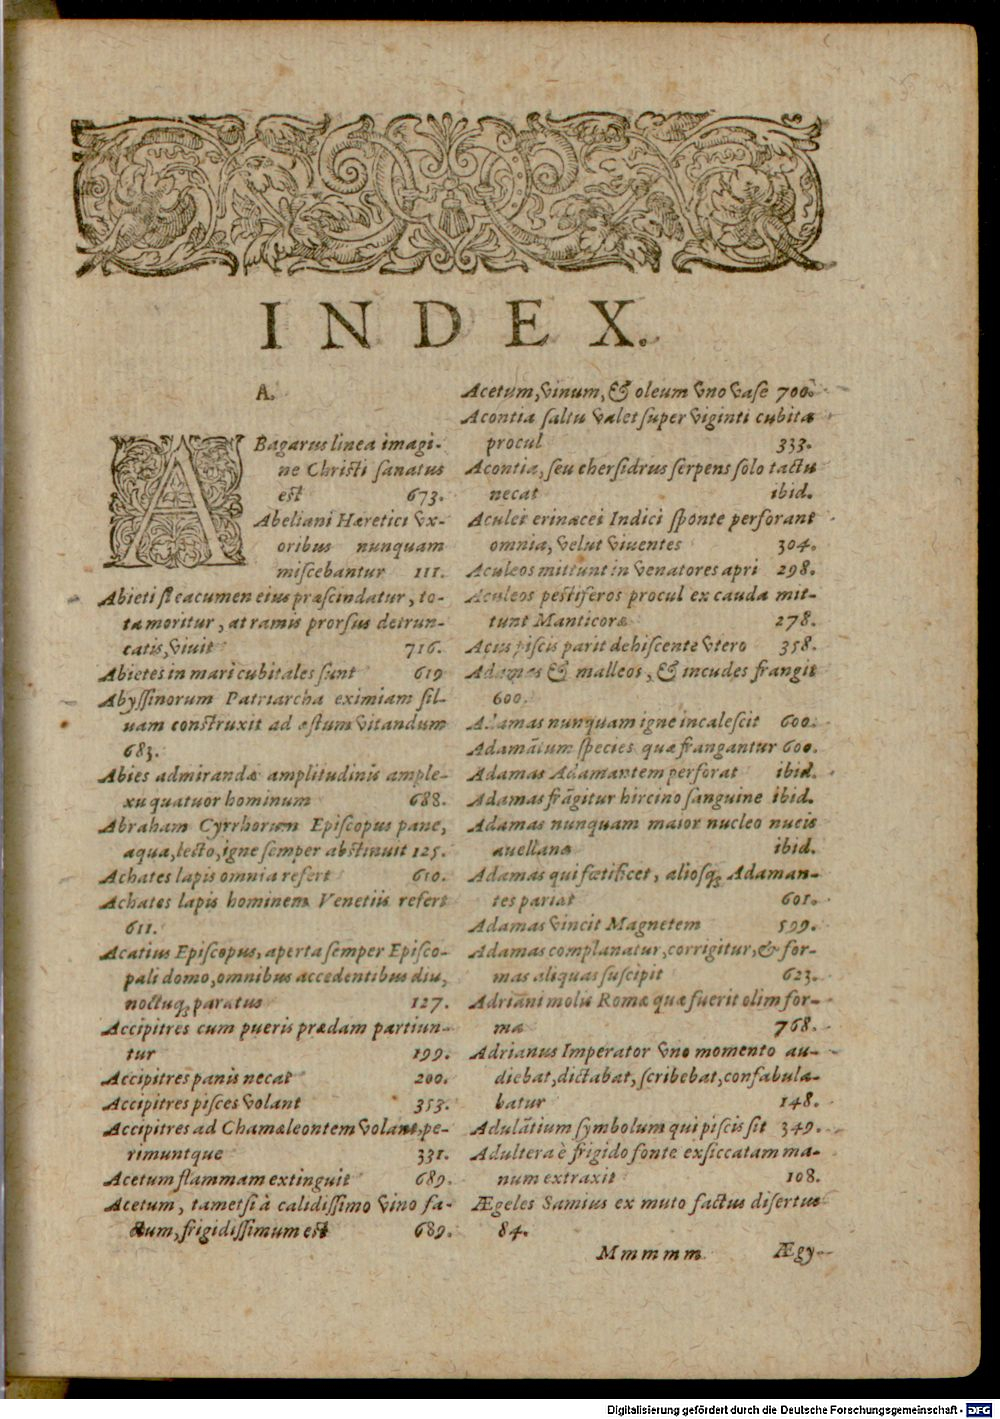 INDEX.
A.
ABagarus linea imagi-
ne Christi sanatus
est 673.
Abeliani Hæretici vx-
oribus nunquam
miscebantur 111.
Abieti si cacumen eius præscindatur, to-
ta moritur, at ramis prorsus detrun-
catis, viuit 716.
Abietes in mari cubitales sunt 619
Abyssinorum Patriarcha eximiam sil-
uam construxit ad æstum vitandum
683.
Abies admirandæ amplitudinis ample-
xu quatuor hominum 688.
Abraham Cyrrhorum Episcopus pane,
aqua, lecto, igne semper abstinuit 125.
Achates lapis omnia refert 610.
Achates lapis hominem Venetiis refert
611.
Acatius Episcopus, aperta semper Episco-
pali domo, omnibus accedentibus diu,
noctuq; paratus 127.
Accipitres cum pueris prædam partiun-
tur 199.
Accipitres panis necat 200.
Accipitres pisces volant 353.
Accipitres ad Chamæleontem volant, pe-
rimuntque 331.
Acetum flammam extinguit 689.
Acetum, tametsi à calidissimo vino fa-
ctum, frigidissimum est 689.
Acetum, vinum, & oleum vno vase 700.
Acontiæ saltu valet super viginti cubita
procul 333.
Acontia, seu chersidrus serpens solo tactu
necat ibid.
Aculei erinacei Indici sponte perforant
omnia, velut viuentes 304.
Aculeos mittunt in venatores apri 298.
Aculeos pestiferos procul ex cauda mit-
tunt Manticoræ 278.
Acus piscis parit dehiscente vtero 358.
Adamas & malleos, & incudes frangit
600.
Adamas nunquam igne incalescit 600.
Adamãtum species quæ frangantur 600.
Adamas Adamantem perforat ibid.
Adamas frãgitur hircino sanguine ibid.
Adamas nunquam maior nucleo nucis
auellanæ ibid.
Adamas qui fœtificet, aliosq; Adaman-
tes pariat 601.
Adamas vincit Magnetem 599.
Adamas complanatur, corrigitur, & for-
mas aliquas suscipit 623.
Adriani molis Romæ quæ fuerit olim for-
ma 768.
Adrianus Imperator vno momento au-
diebat, dictabat, scribebat, confabula-
batur 148.
Adulãtium symbolum qui piscis sit 349.
Adultera è frigido fonte exsiccatam ma-
num extraxit 108.
Ægeles Samius ex muto factus disertus
84.
Mmmmm Ægy-
Digitalisierung gefördert durch die Deutsche Forschungsgemeinschaft - DFG